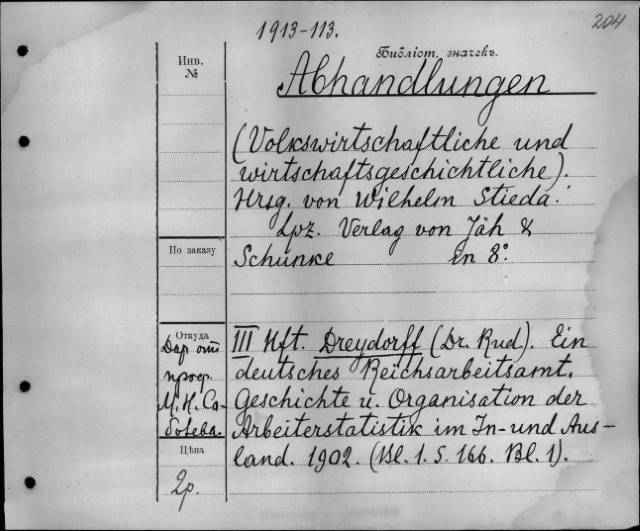 1913-113.
204
Инв.
№
Библіот. значекъ.
Abhandlungen
(Volkswirtschaftliche und
wirtschaftsgeschichtliche).
Hrsg. von Wilhelm Stieda.
Lpz. Verlag von Jäh &
По заказу
Schunke in 8°.
Откуда
Даръ отъ
проф.
М. Н. Со-
болева.
III Hft. Dreydorff (Dr. Rud). Ein
deutsches Reichsarbeitsamt.
Geschichte u. Organisation der
Arbeiterstatistik im In- und Aus-
land. 1902. (Bl. 1. S. 166. Bl. 1).
Цѣна
2р.